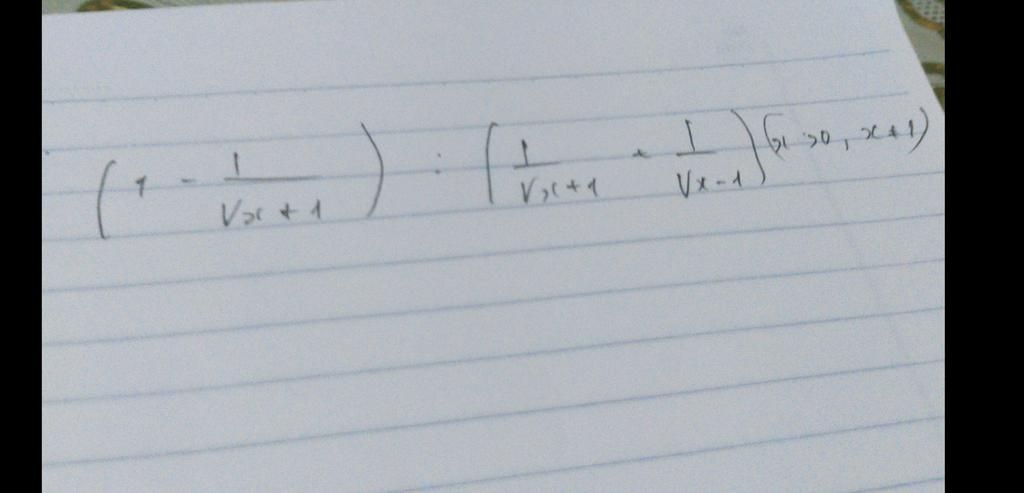 (1 - 1/(√x + 1)) : (1/(√x + 1) + 1/(√x - 1)) (x > 0, x ≠ 1)